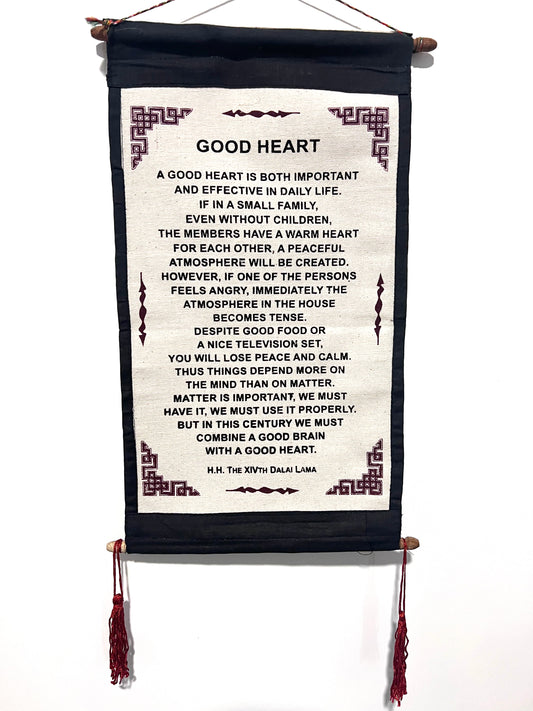 GOOD HEART
A GOOD HEART IS BOTH IMPORTANT
AND EFFECTIVE IN DAILY LIFE.
IF IN A SMALL FAMILY,
EVEN WITHOUT CHILDREN,
THE MEMBERS HAVE A WARM HEART
FOR EACH OTHER, A PEACEFUL
ATMOSPHERE WILL BE CREATED.
HOWEVER, IF ONE OF THE PERSONS
FEELS ANGRY, IMMEDIATELY THE
ATMOSPHERE IN THE HOUSE
BECOMES TENSE.
DESPITE GOOD FOOD OR
A NICE TELEVISION SET,
YOU WILL LOSE PEACE AND CALM.
THUS THINGS DEPEND MORE ON
THE MIND THAN ON MATTER.
MATTER IS IMPORTANT, WE MUST
HAVE IT, WE MUST USE IT PROPERLY.
BUT IN THIS CENTURY WE MUST
COMBINE A GOOD BRAIN
WITH A GOOD HEART.
H.H. THE XIVTH DALAI LAMA